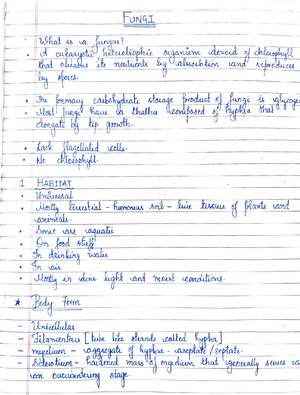 FUNGI
• What is a fungus?
• A eukaryotic heterotrophic organism devoid of chlorophyll
that obtains its nutrients by absorption and reproduces
by spores.
• The primary carbohydrate storage product of fungi is glycogen
• Most fungi have a thallus composed of hyphae that
elongate by tip growth.
• Lack flagellated cells.
• No chlorophyll.
1 HABITAT
• Universal
• Mostly terrestrial - humus soil - live tissues of plants and
animals.
• Some are aquatic
• On food stuff
• In drinking water
• In air
• Mostly in dim light and moist conditions.
* Body Form
- Unicellular
- Filamentous [tube like strands called hypha]
- mycelium - aggregate of hyphae - aseptate/septate.
- Sclerotium - hardened mass of mycelium that generally serves as
an overwintering stage.